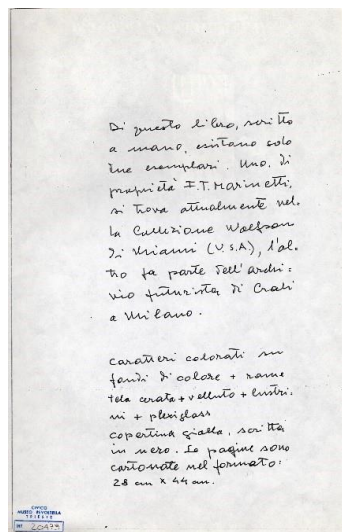 Di questo libro, scritto
a mano, esistano solo
due esemplari. Uno, di
proprietà F.T. Marinetti,
si trova attualmente nel-
la Collezione Wolfson
di Miami (U.S.A.), l'al-
tro fa parte dell'archi-
vio futurista di Crali
a Milano.
caratteri colorati su
fondi di colore + rame
tela cerata + velluto + lustri-
ni + plexiglass
copertina gialla, scritta
in nero. Le pagine sono
cartonate nel formato:
28 cm x 44 cm.
CIVICO
MUSEO REVOLTELLA
TRIESTE